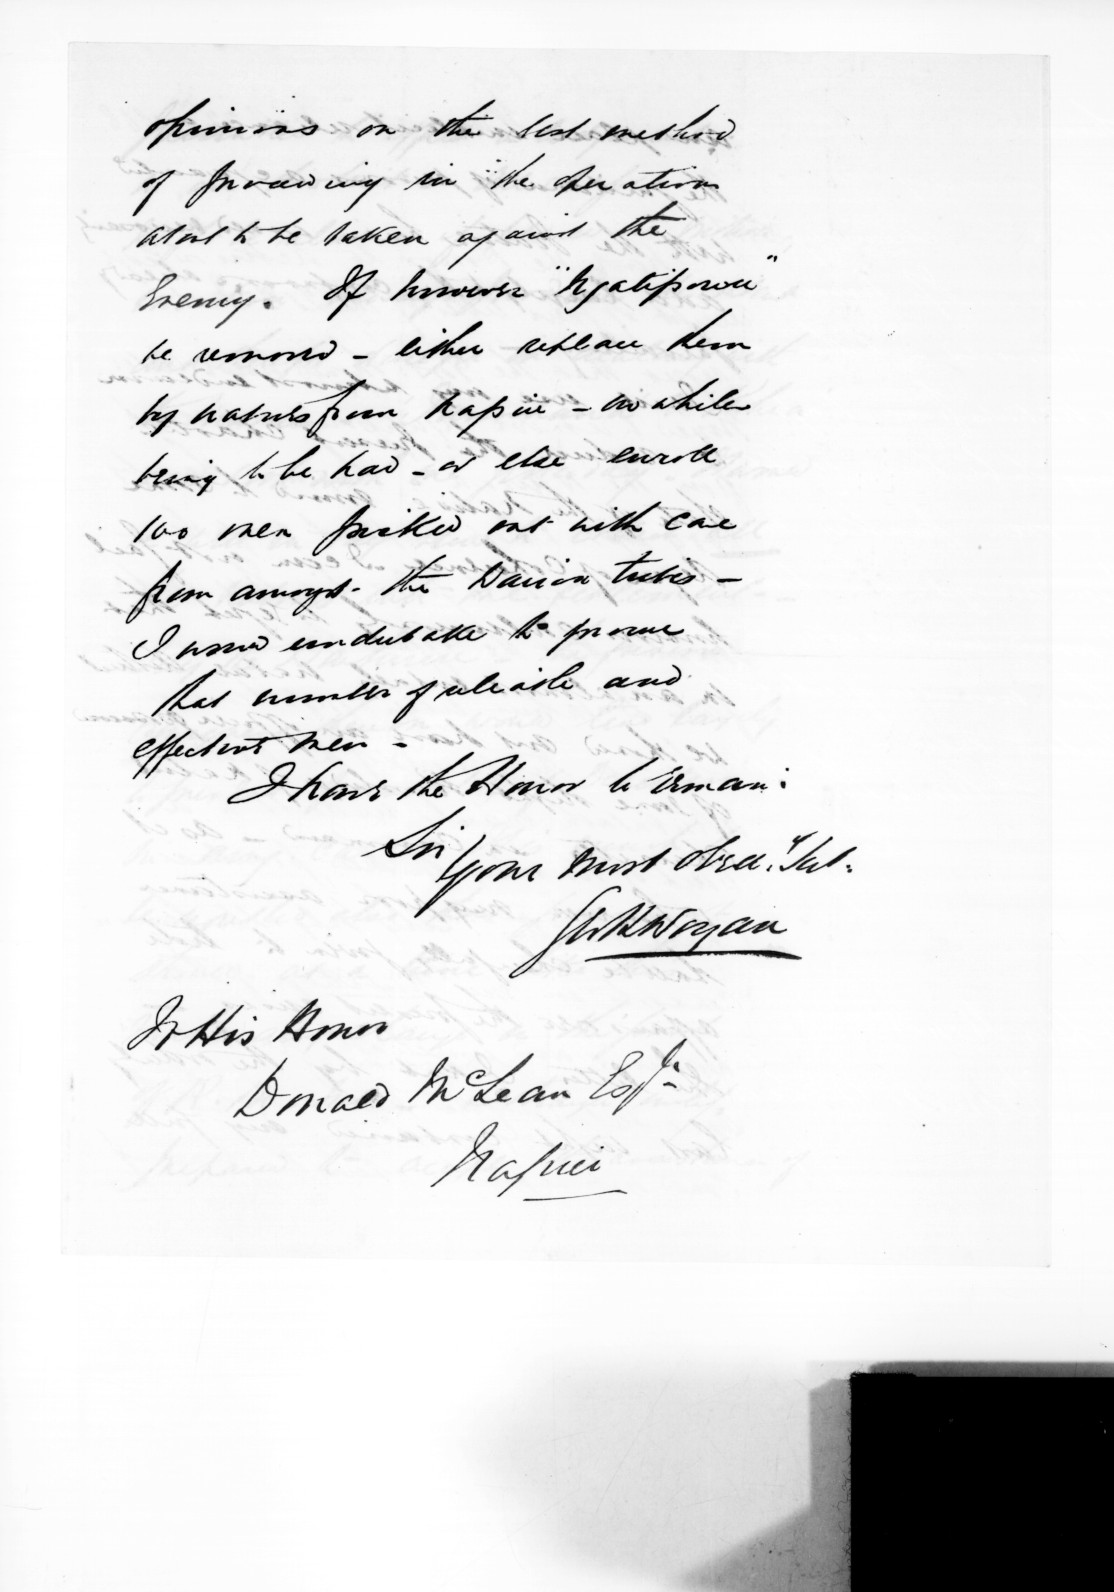 opinions on the best method
of proceeding in the operations
about to be taken against the
Enemy. If however "Ngatiporou"
be removed - either replace them
by natives from Napier - no whites
being to be had - or else enroll
100 men picked out with care
from amongst the various tribes -
I would undertake to procure
that number of reliable and
effective men -
I have the Honor to remain:
Sir
Your most obedt. Svt.
To His Honor
Donald McLean Esqr
Napier